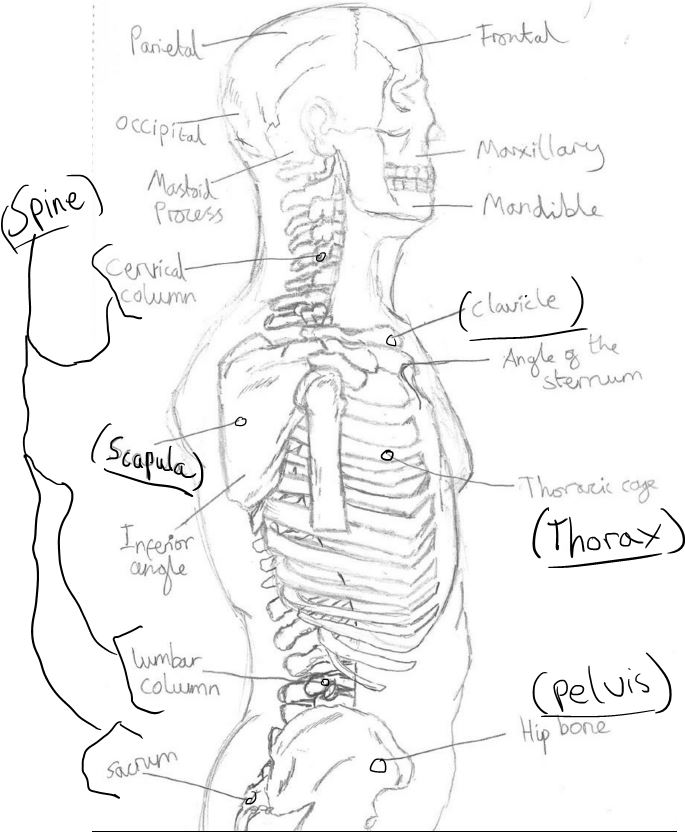 Parietal
Frontal
Occipital
Maxillary
Mastoid
Process
Mandible
(Spine)
Cervical
column
(Clavicle)
Angle of the
sternum
(Scapula)
Thoracic cage
(Thorax)
Inferior
angle
Lumbar
column
(Pelvis)
Hip bone
Sacrum